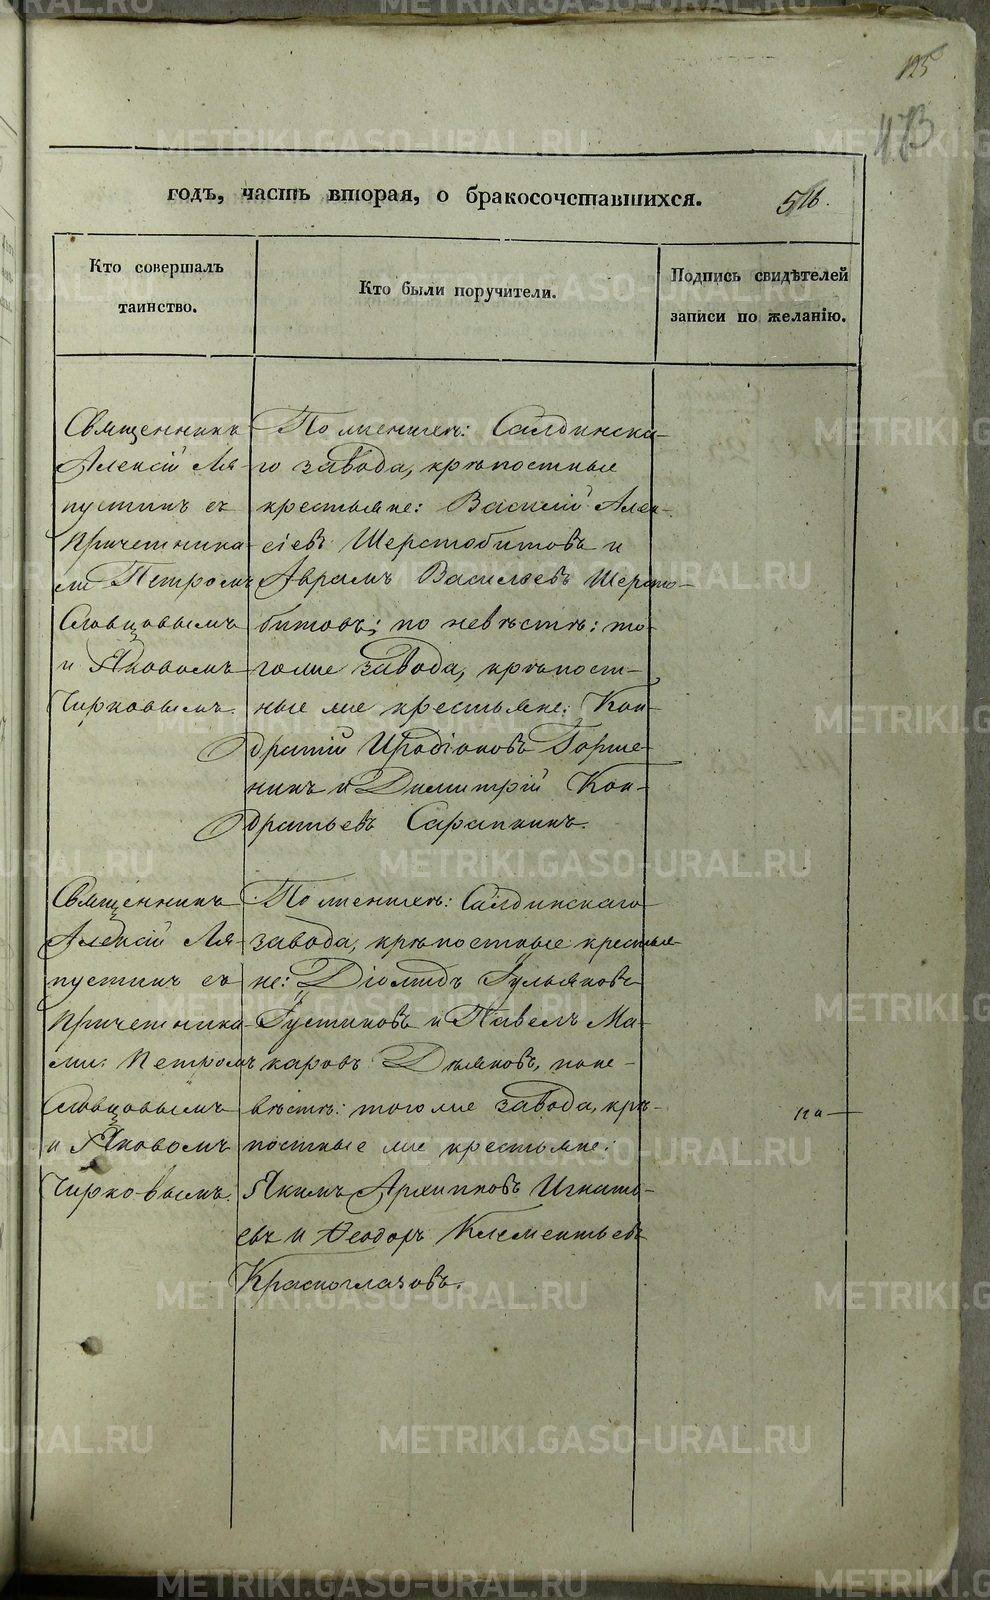 195
473
годъ, часть вторая, о бракосочетавшихся.
516.
Кто совершалъ
таинство.
Кто были поручители.
Подпись свидѣтелей
записи по желанію.
Священникъ
Алексій Ля-
пустинъ съ
Причетника-
ми Петромъ
Словцовымъ
и Яковомъ
Чирковымъ.
По женихѣ: Салдинска-
го завода, крѣпостные
крестьяне: Василій Алек-
сіевъ Шерстобитовъ и
Аврамъ Васильевъ Шерсто-
битовъ; по невѣстѣ: то-
гоже завода, крѣпост-
ные же крестьяне: Кон-
дратій Иродіоновъ Горше-
нинъ и Димитрій Кон-
дратьевъ Сарапкинъ.
Священникъ
Алексій Ля-
пустинъ съ
Причетника-
ми: Петромъ
Словцовымъ
и Яковомъ
Чирковымъ.
По женихѣ: Салдинскаго
завода, крѣпостные крестья-
не: Діомидъ Гульяновъ
Густиновъ и Павелъ Ма-
каровъ Дьяковъ, поне-
вѣстѣ: тогоже завода, крѣ-
постные же крестьяне:
Якимъ Архиповъ Игнать-
евъ и Ѳеодоръ Клементьевъ
Красноглазовъ.
METRIKI.GASO-URAL.RU